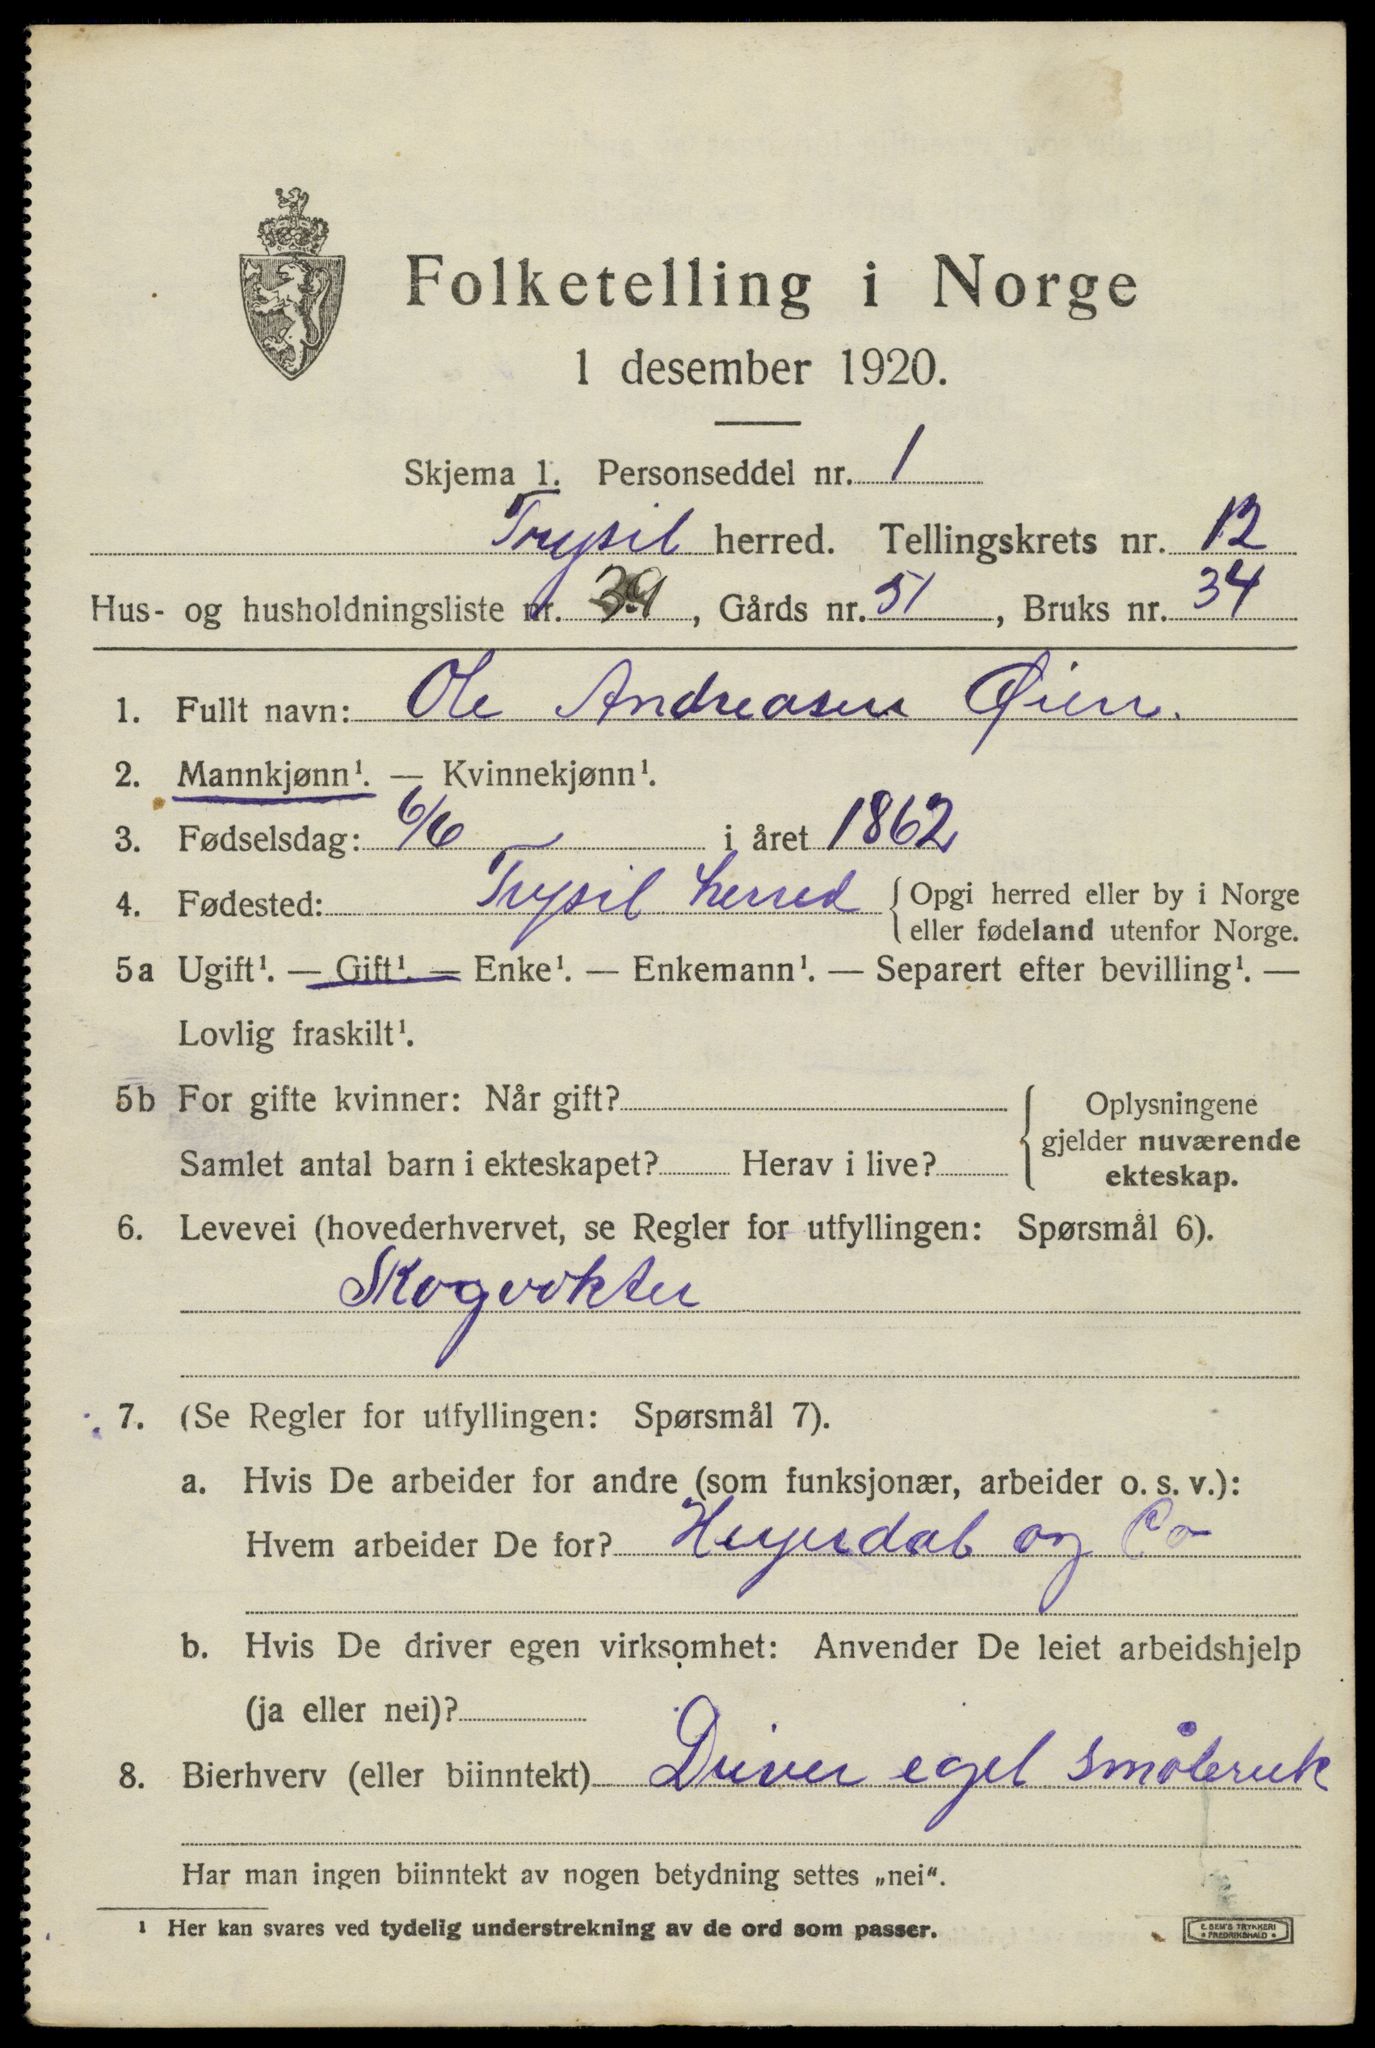 Folketelling i Norge
1 desember 1920.
Skjema 1. Personseddel nr. 1
Trysil herred. Tellingskrets nr. 12
Hus- og husholdningsliste nr. 39, Gårds nr. 51, Bruks nr. 34
1. Fullt navn: Ole Andreasen Øien.
2. Mannkjønn¹. — Kvinnekjønn¹.
3. Fødselsdag: 6/6 i året 1862
4. Fødested: Trysil herred { Opgi herred eller by i Norge
eller fødeland utenfor Norge.
5a Ugift¹. — Gift¹. — Enke¹. — Enkemann¹. — Separert efter bevilling¹. —
Lovlig fraskilt¹.
5b For gifte kvinner: Når gift? { Oplysningene
gjelder nuværende
Samlet antal barn i ekteskapet? Herav i live? ekteskap.
6. Levevei (hovederhvervet, se Regler for utfyllingen: Spørsmål 6).
Skogvokter
7. (Se Regler for utfyllingen: Spørsmål 7).
a. Hvis De arbeider for andre (som funksjonær, arbeider o. s. v.):
Hvem arbeider De for? Heyerdal og Co
b. Hvis De driver egen virksomhet: Anvender De leiet arbeidshjelp
(ja eller nei)?
8. Bierhverv (eller biinntekt) Driver eget småbruk
Har man ingen biinntekt av nogen betydning settes „nei".
¹ Her kan svares ved tydelig understrekning av de ord som passer.
E. SEM'S TRYKKERI
FREDRIKSHALD